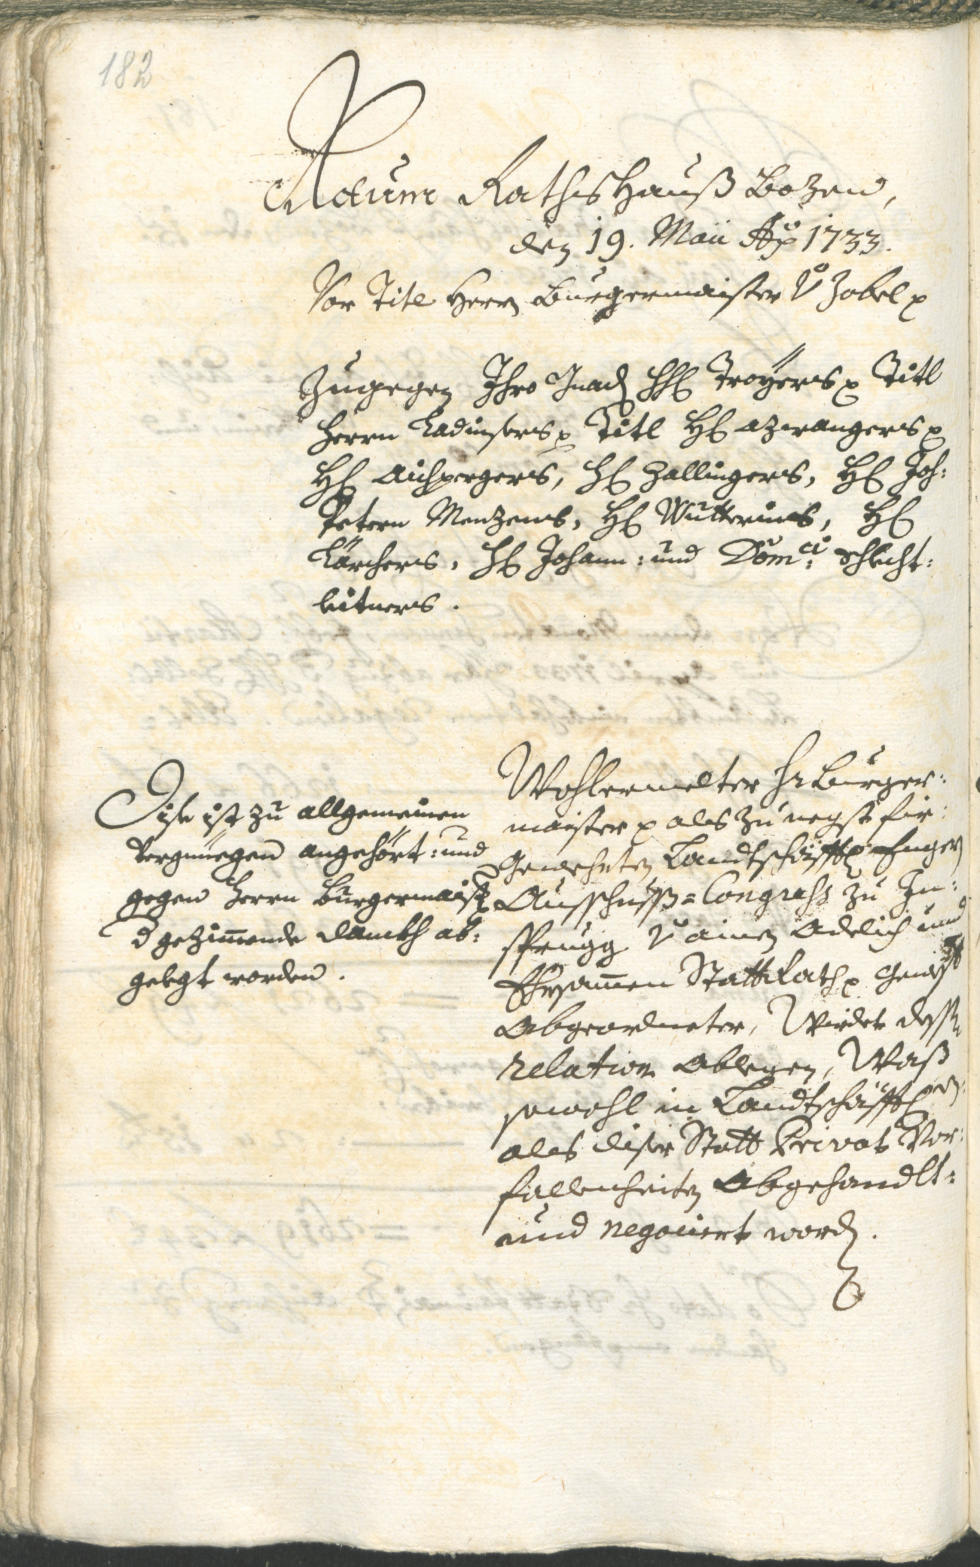 182
Actum Rathshauß Bozen,
den 19. Maii Ao 1733.
Vor Titl Herrn Burgermaister v Zobel p
Zugegen Ihro Gnad HH Troyers p Titl
Herrn Ladinsers p Titl H Azwangers p
H Aichpergers, H Zallingers, H Joh:
Petern Menzens, H Mutterins, H
Kärchers, H Johann: und Dom:ci Schlecht:
leitners.
Wohlermelter Hr Burger:
maister p als zu negst fir:
gewehrten Landtschäfft Engen
Ausschuß=Congress zu In:
sprugg v ainen Adelich und
Ehrsammen Statt Rath p gewest
Abgeordneter, Würdet dessen
relation ablegen, Waß
sowohl in Landtschäfft
als diser Statt Privat Vor:
fallenheiten abgehandlt:
und negociert word.
Dise ist zu allgemeinen
Vergnüegen angehört: und
gegen Herrn Burgermaist
d gezimmende Danckh ab:
gelegt worden.